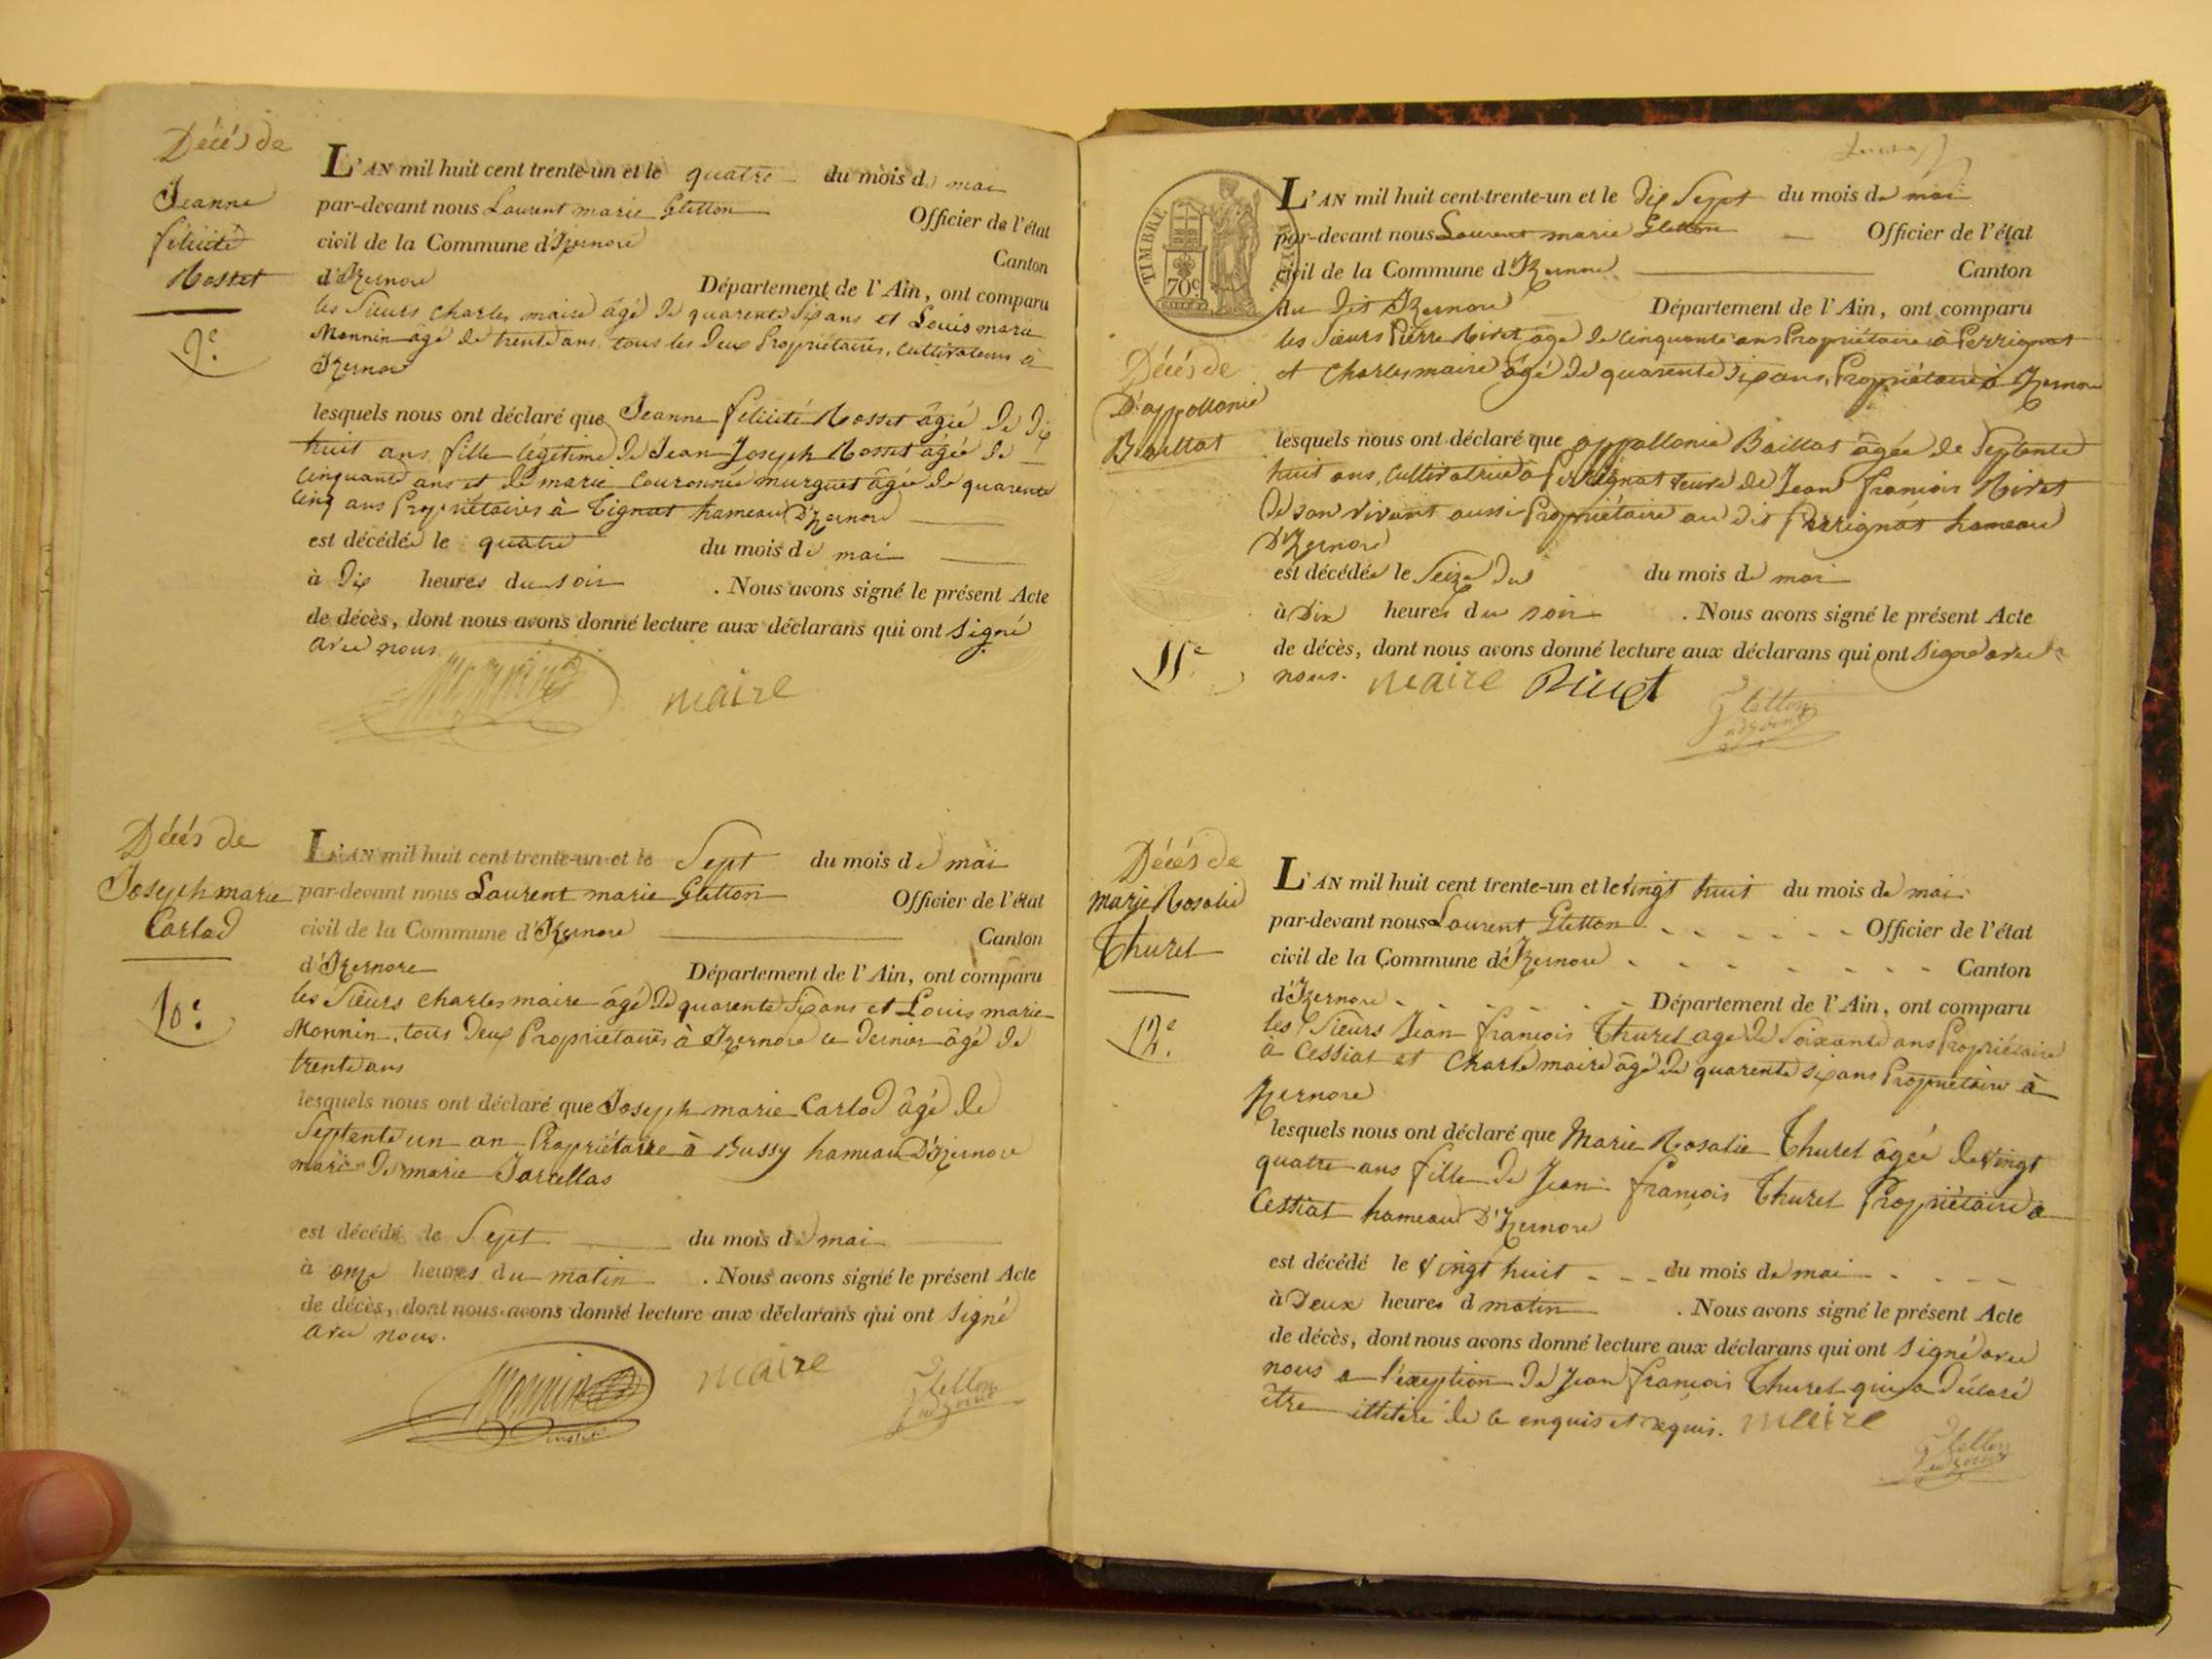 Décés de
Jeanne
félicité
Rosset
9.e
L'AN mil huit cent trente-un et le quatre du mois de mai
par-devant nous Laurent marie Gletton Officier de l'état
civil de la Commune d'Izernore Canton
d'Izernore Département de l'Ain, ont comparu
les Sieurs Charles maire âgé de quarente six ans et Louis marie
Monnin âgé de trente ans, tous les deux Propriétaires, Cultivateurs à
Izernore
lesquels nous ont déclaré que Jeanne félicité Rosset âgée de dix
huit ans, fille légitime de Jean Joseph Rosset âgée de
Cinquante ans et de marie Couronnée murguet âgée de quarente
Cinq ans Propriétaires à Tignat hameau D'Izernore
est décédée le quatre du mois de mai
à dix heures du soir . Nous avons signé le présent Acte
de décès, dont nous avons donné lecture aux déclarans qui ont signé
avec nous
Monnin maire
Décés de
Joseph marie
Carlod
10.e
L'AN mil huit cent trente-un et le Sept du mois de mai
par-devant nous Laurent marie Gletton Officier de l'état
civil de la Commune d'Izernore Canton
d'Izernore Département de l'Ain, ont comparu
les Sieurs Charles maire âgé de quarente six ans et Louis marie
Monnin, tous deux Propriétaires à Izernore ce dernier âgé de
trente ans
lesquels nous ont déclaré que Joseph marie Carlod âgé de
Septente un an Propriétaire à Bussy hameau D'Izernore
mari de marie Jarcellas
est décédé le Sept du mois de mai
à onze heures du matin . Nous avons signé le présent Acte
de décès, dont nous avons donné lecture aux déclarans qui ont signé
avec nous.
Monnin maire Gletton
adjoint
TIMBRE
70c
L'AN mil huit cent trente-un et le dix Sept du mois de mai
par-devant nous Laurent marie Gletton Officier de l'état
civil de la Commune d'Izernore Canton
du dit Izernore Département de l'Ain, ont comparu
les Sieurs Pierre Rivet, âge de Cinquante ans Propriétaire à Perrignat
et Charles maire âgé de quarente six ans, Propriétaire à Izernore
Décés de
D'appollonie
Baillat
11.e
lesquels nous ont déclaré que appollonie Baillat âgée de Septente
huit ans, Cultivatrice à Perrignat veuve de Jean françois Rivet
De son vivant aussi Propriétaire au dit Perrignat hameau
D'Izernore
est décédée le Seize du du mois de mai
à Dix heures du soir . Nous avons signé le présent Acte
de décès, dont nous avons donné lecture aux déclarans qui ont signé avec
nous. maire Rivet Gletton
adjoint
Décés de
marie Rosalie
Thuret
12.e
L'AN mil huit cent trente-un et le vingt huit du mois de mai
par-devant nous Laurent Gletton Officier de l'état
civil de la Commune d'Izernore Canton
d'Izernore Département de l'Ain, ont comparu
les Sieurs Jean françois Thuret age de Soixante ans Propriétaire
à Cessiat et Charle maire âgé de quarente six ans Propriétaire à
Izernore
lesquels nous ont déclaré que Marie Rosalie Thuret âgée de vingt
quatre ans fille de Jean françois Thuret Propriétaire à
Cessiat hameau D'Izernore
est décédé le vingt huit du mois de mai
à Deux heures d matin . Nous avons signé le présent Acte
de décès, dont nous avons donné lecture aux déclarans qui ont signé avec
nous a l'éxeption de Jean françois Thuret qui a déclaré
être illitéré de ce enquis et requis. maire
Gletton
adjoint